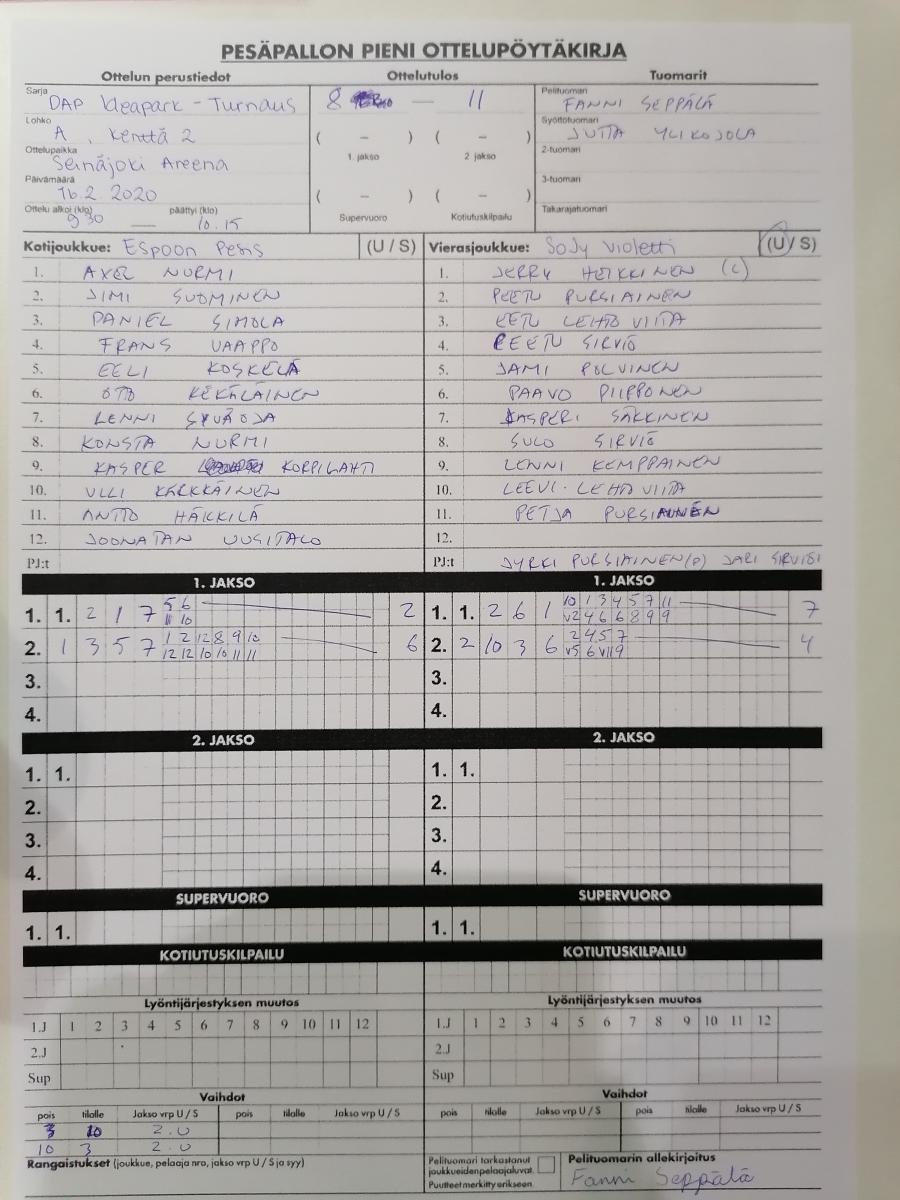 PESÄPALLON PIENI OTTELUPÖYTÄKIRJA
Ottelun perustiedot Ottelutulos Tuomarit
Sarja DAP Ideapark - Turnaus
8 — 11
Pelituomari FANNI SEPPÄLÄ
Lohko A, kenttä 2
( – ) ( – )
1. jakso 2. jakso
Syöttötuomari JUTTA YLIKOJOLA
Ottelupaikka Seinäjoki Areena
2-tuomari
Päivämäärä 16.2.2020
( – ) ( – )
3-tuomari
Ottelu alkoi (klo) 9 30 — päättyi (klo) 10.15
Supervuoro Kotiutuskilpailu
Takarajatuomari
Kotijoukkue: Espoon Pesis (U / S) Vierasjoukkue: SoJy Violetti (U / S)
1. AXEL NURMI 1. JERRY HEIKKINEN (c)
2. JIMI SUOMINEN 2. PEETU PURSIAINEN
3. DANIEL SIMOLA 3. EETU LEHTOVIITA
4. FRANS VAAPPO 4. EETU SIRVIÖ
5. EELI KOSKELA 5. JAMI POLVINEN
6. OTO KEKÄLÄINEN 6. PAAVO PIIPPONEN
7. LENNI SYVÄOJA 7. KASPERI SÄKKINEN
8. KONSTA NURMI 8. SULO SIRVIÖ
9. KASPER KORPILAHTI 9. LENNI KEMPPAINEN
10. ULLI KÄRKKÄINEN 10. LEEVI LEHTOVIITA
11. ANTTO HÄKKILÄ 11. PETJA PURSIAINEN
12. JOONATAN UUSITALO 12.
PJ:t PJ:t JYRKI PURSIAINEN(P) JARI SIRVIÖ
1. JAKSO 1. JAKSO
1. 1. 2 1 7 5 6 2 1. 1. 2 6 1 10 1 3 4 5 7 11 7
11 10 v2 4 6 6 8 9 9
2. 1 3 5 7 1 2 12 8 9 10 6 2. 2 10 3 6 2 4 5 7 4
12 12 10 10 11 11 v5 6 v11 9
3. 3.
4. 4.
2. JAKSO 2. JAKSO
1. 1. 1. 1.
2. 2.
3. 3.
4. 4.
SUPERVUORO SUPERVUORO
1. 1. 1. 1.
KOTIUTUSKILPAILU KOTIUTUSKILPAILU
Lyöntijärjestyksen muutos Lyöntijärjestyksen muutos
1.J 1 2 3 4 5 6 7 8 9 10 11 12 1.J 1 2 3 4 5 6 7 8 9 10 11 12
2.J 2.J
Sup Sup
Vaihdot Vaihdot
pois tilalle Jakso vrp U / S pois tilalle Jakso vrp U / S pois tilalle Jakso vrp U / S pois tilalle Jakso vrp U / S
3 10 2.U
10 3 2.U
Rangaistukset (joukkue, pelaaja nro, jakso vrp U / S ja syy)
Pelituomari tarkastanut
joukkueiden pelaajaluvat.
Puutteet merkitty erikseen.
Pelituomarin allekirjoitus
Fanni Seppälä